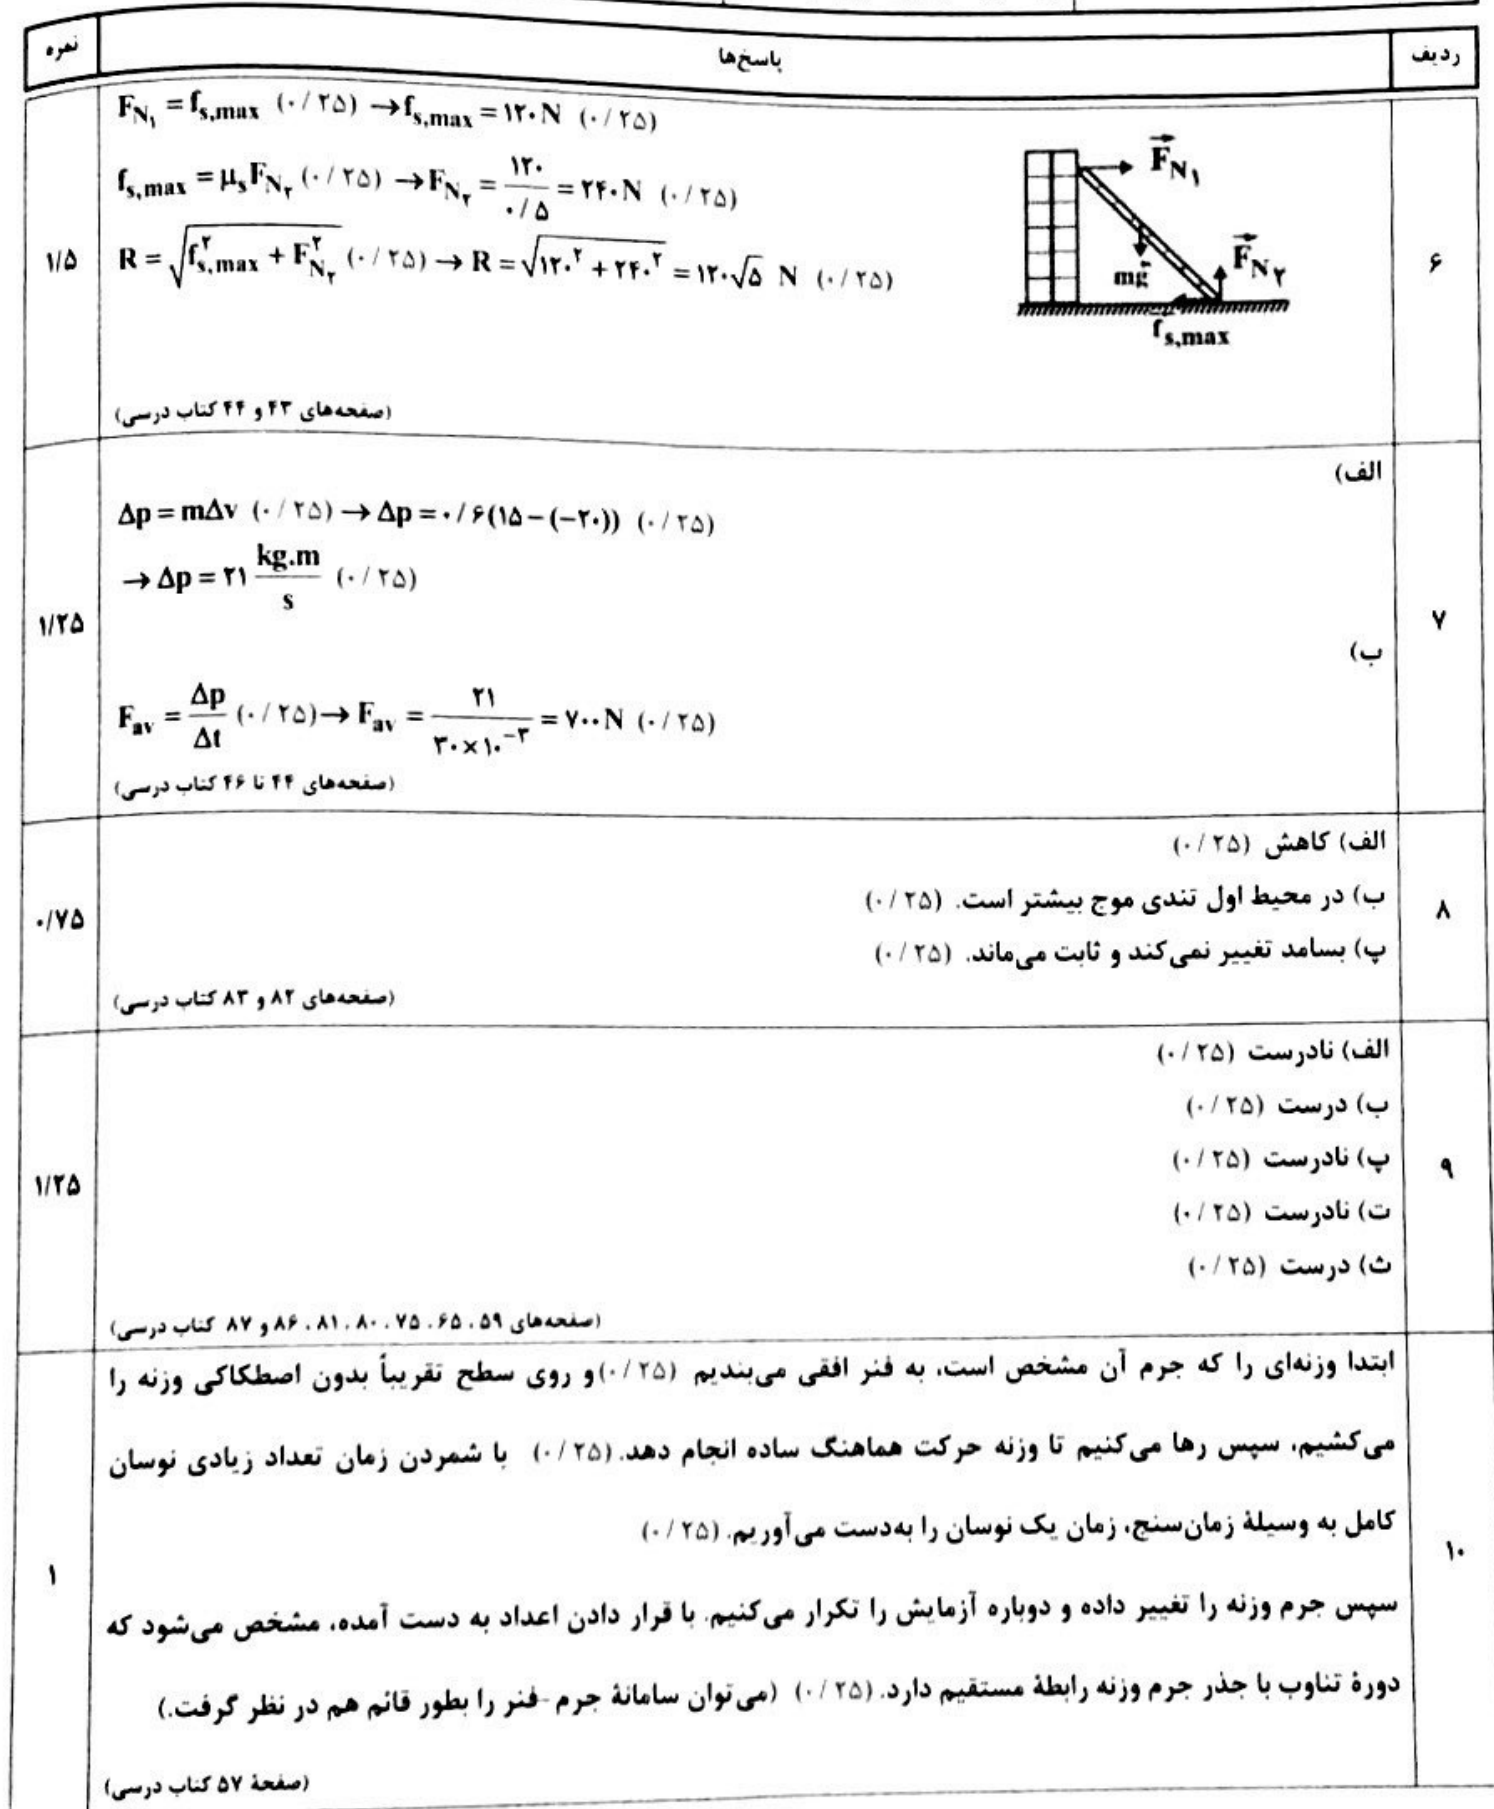 ردیف
پاسخ‌ها
نمره
۶
F_N₁ = f_s,max (۰/۲۵) → f_s,max = ۱۲۰ N (۰/۲۵)
f_s,max = μ_s F_N₂ (۰/۲۵) → F_N₂ = ۱۲۰ / ۰/۵ = ۲۴۰ N (۰/۲۵)
R = √(f²_s,max + F²_N₂) (۰/۲۵) → R = √(۱۲۰² + ۲۴۰²) = ۱۲۰√۵ N (۰/۲۵)
F_N₁
F_N₂
mg
f_s,max
(صفحه‌های ۴۳ و ۴۴ کتاب درسی)
۱/۵
۷
الف)
Δp = mΔv (۰/۲۵) → Δp = ۰/۶(۱۵ − (−۲۰)) (۰/۲۵)
→ Δp = ۲۱ kg.m / s (۰/۲۵)
ب)
F_av = Δp / Δt (۰/۲۵) → F_av = ۲۱ / ۳۰×۱۰⁻³ = ۷۰۰ N (۰/۲۵)
(صفحه‌های ۴۴ تا ۴۶ کتاب درسی)
۱/۲۵
۸
الف) کاهش (۰/۲۵)
ب) در محیط اول تندی موج بیشتر است. (۰/۲۵)
پ) بسامد تغییر نمی‌کند و ثابت می‌ماند. (۰/۲۵)
(صفحه‌های ۸۲ و ۸۳ کتاب درسی)
۰/۷۵
۹
الف) نادرست (۰/۲۵)
ب) درست (۰/۲۵)
پ) نادرست (۰/۲۵)
ت) نادرست (۰/۲۵)
ث) درست (۰/۲۵)
(صفحه‌های ۵۹، ۶۵، ۷۵، ۸۰، ۸۱، ۸۶ و ۸۷ کتاب درسی)
۱/۲۵
۱۰
ابتدا وزنه‌ای را که جرم آن مشخص است، به فنر افقی می‌بندیم (۰/۲۵) و روی سطح تقریباً بدون اصطکاکی وزنه را
می‌کشیم، سپس رها می‌کنیم تا وزنه حرکت هماهنگ ساده انجام دهد. (۰/۲۵) با شمردن زمان تعداد زیادی نوسان
کامل به وسیلهٔ زمان‌سنج، زمان یک نوسان را به‌دست می‌آوریم. (۰/۲۵)
سپس جرم وزنه را تغییر داده و دوباره آزمایش را تکرار می‌کنیم. با قرار دادن اعداد به دست آمده، مشخص می‌شود که
دورهٔ تناوب با جذر جرم وزنه رابطهٔ مستقیم دارد. (۰/۲۵) (می‌توان سامانهٔ جرم-فنر را بطور قائم هم در نظر گرفت.)
(صفحهٔ ۵۷ کتاب درسی)
۱